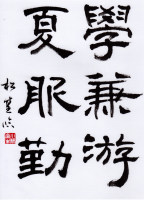 學兼游
夏服勤